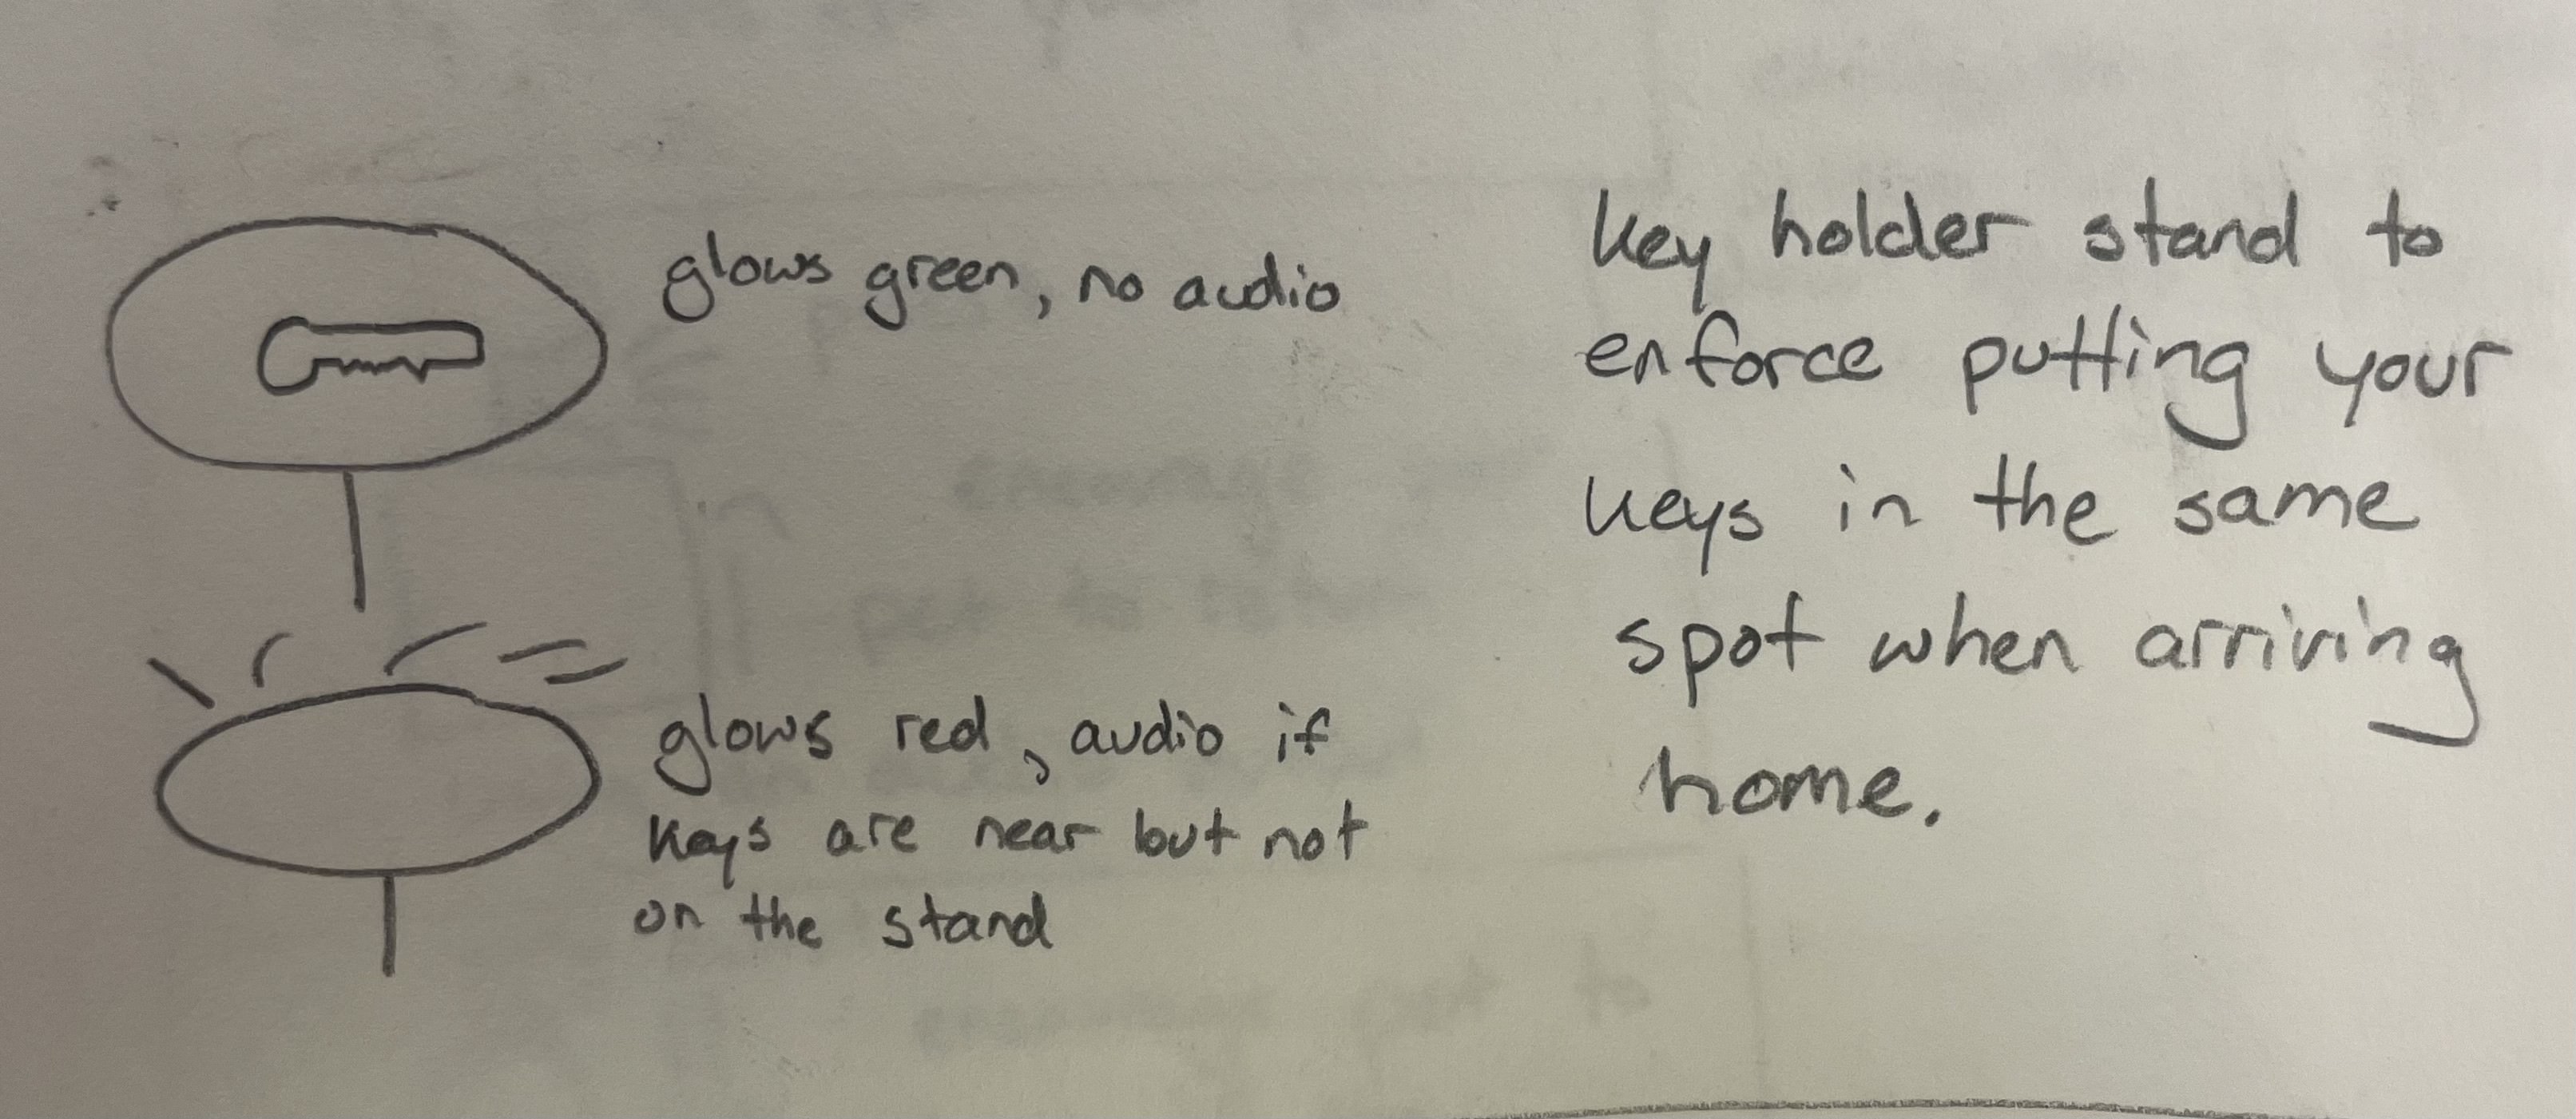 glows green, no audio
glows red, audio if
keys are near but not
on the stand
key holder stand to
enforce putting your
keys in the same
spot when arriving
home.